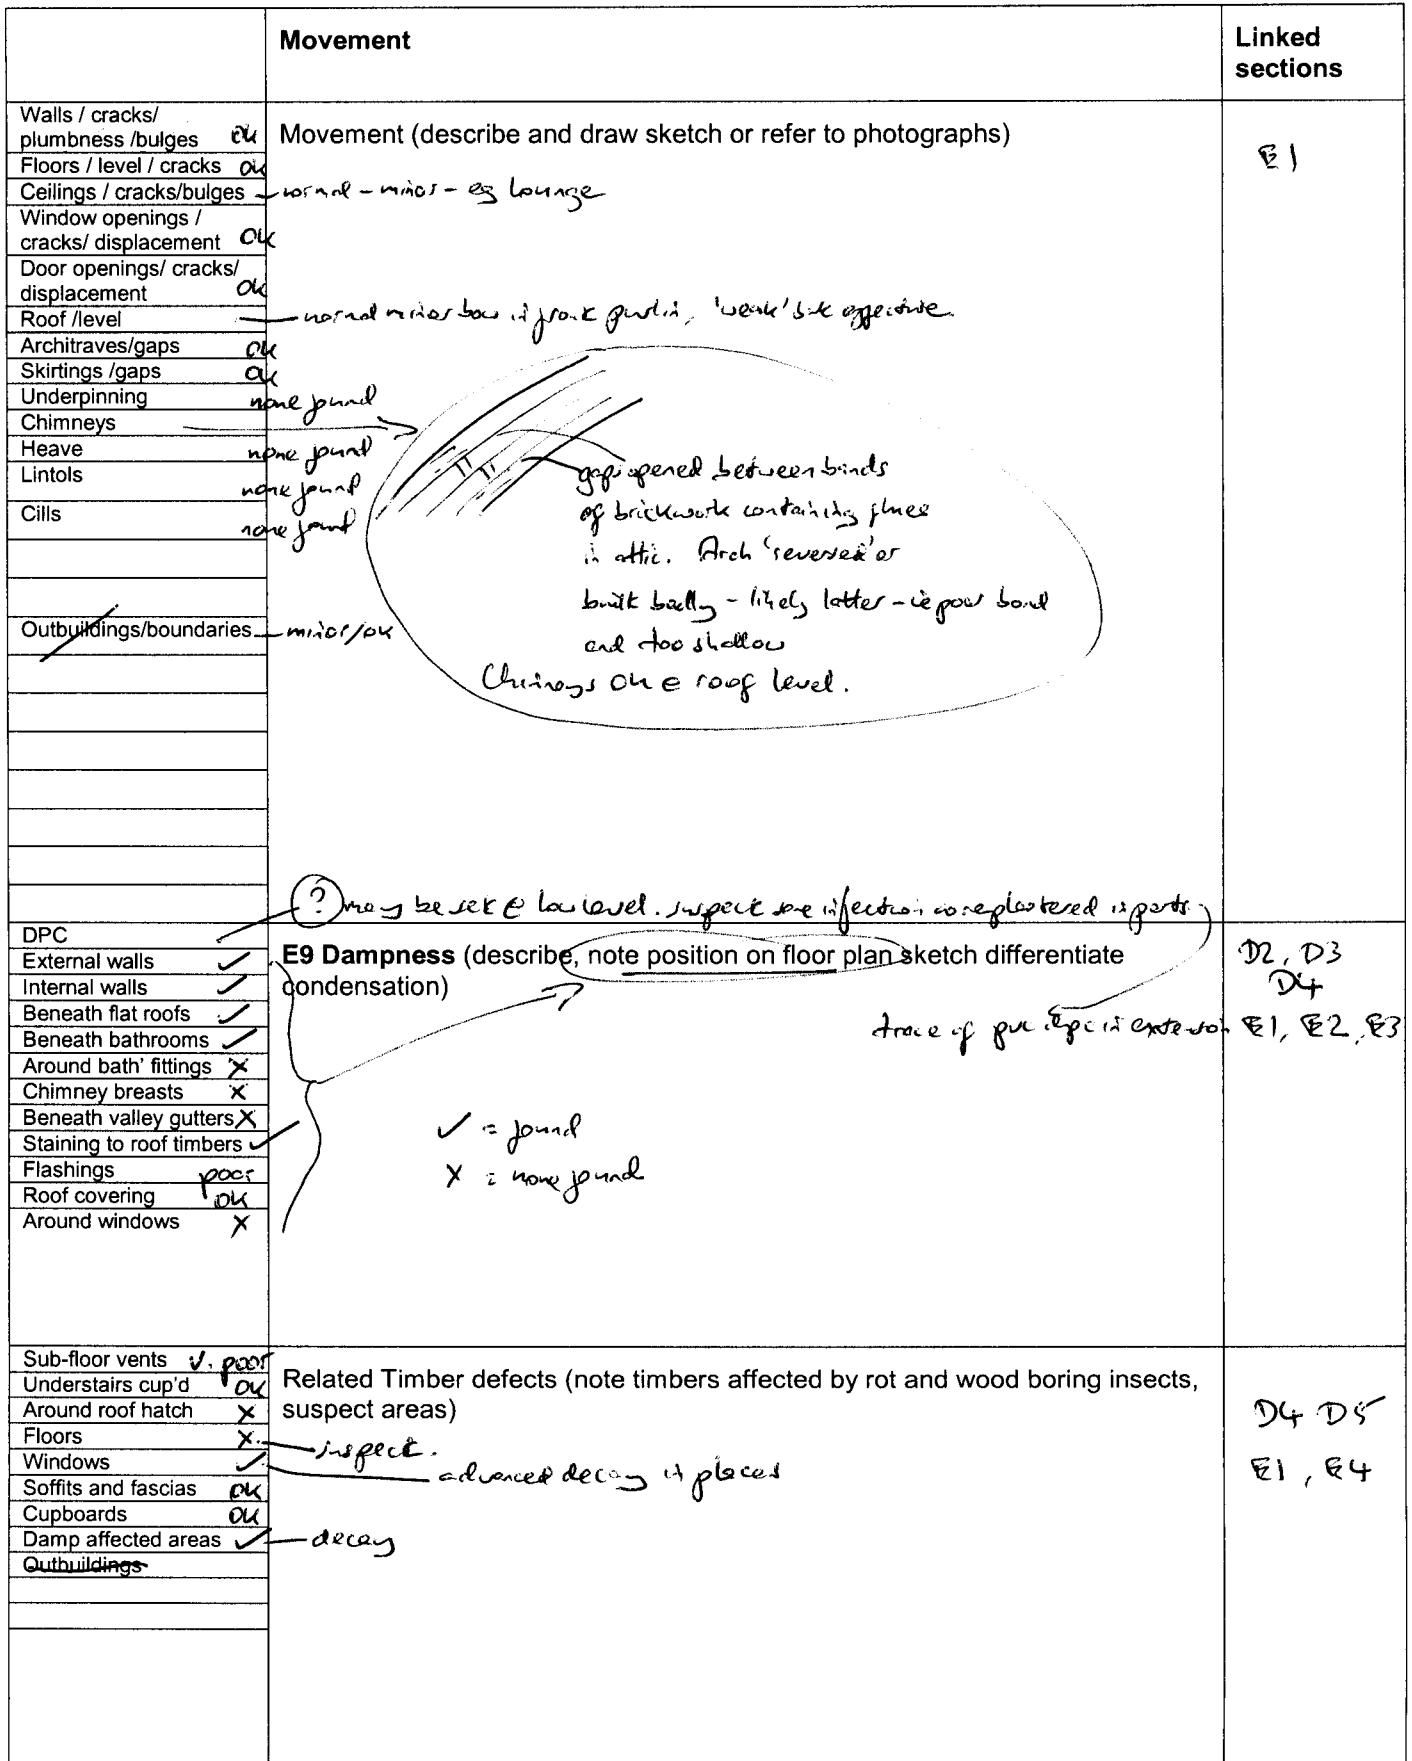 Movement
Linked
sections
Walls / cracks/
plumbness /bulges ok
Movement (describe and draw sketch or refer to photographs)
E1
Floors / level / cracks ok
Ceilings / cracks/bulges - normal - minor - eg lounge
Window openings /
cracks/ displacement ok
Door openings/ cracks/
displacement ok
Roof /level - normal minor bow in front purlin, 'weak' but effective.
Architraves/gaps ok
Skirtings /gaps ok
Underpinning none found
Chimneys
Heave none found
Lintols none found
Cills none found
gaps opened between binds
of brickwork containing flues
in attic. Arch 'reversed' or
built badly - likely latter - ie poor bond
and too shallow
Chimneys ok @ roof level.
Outbuildings/boundaries - minor/ok
? may be set @ low level. suspect some injection as replastered in parts.
DPC
External walls ✓
E9 Dampness (describe, note position on floor plan sketch differentiate
condensation)
D2, D3
D4
Internal walls ✓
Beneath flat roofs ✓
trace of pvc dpc in extension E1, E2, E3
Beneath bathrooms ✓
Around bath' fittings X
Chimney breasts X
Beneath valley gutters X
Staining to roof timbers ✓
✓ = found
X = none found
Flashings poor
Roof covering ok
Around windows X
Sub-floor vents v. poor
Understairs cup'd ok
Related Timber defects (note timbers affected by rot and wood boring insects,
suspect areas)
D4 D5
Around roof hatch X
Floors X - suspect.
Windows ✓ - advanced decay in places
E1, E4
Soffits and fascias ok
Cupboards ok
Damp affected areas ✓ - decay
Outbuildings